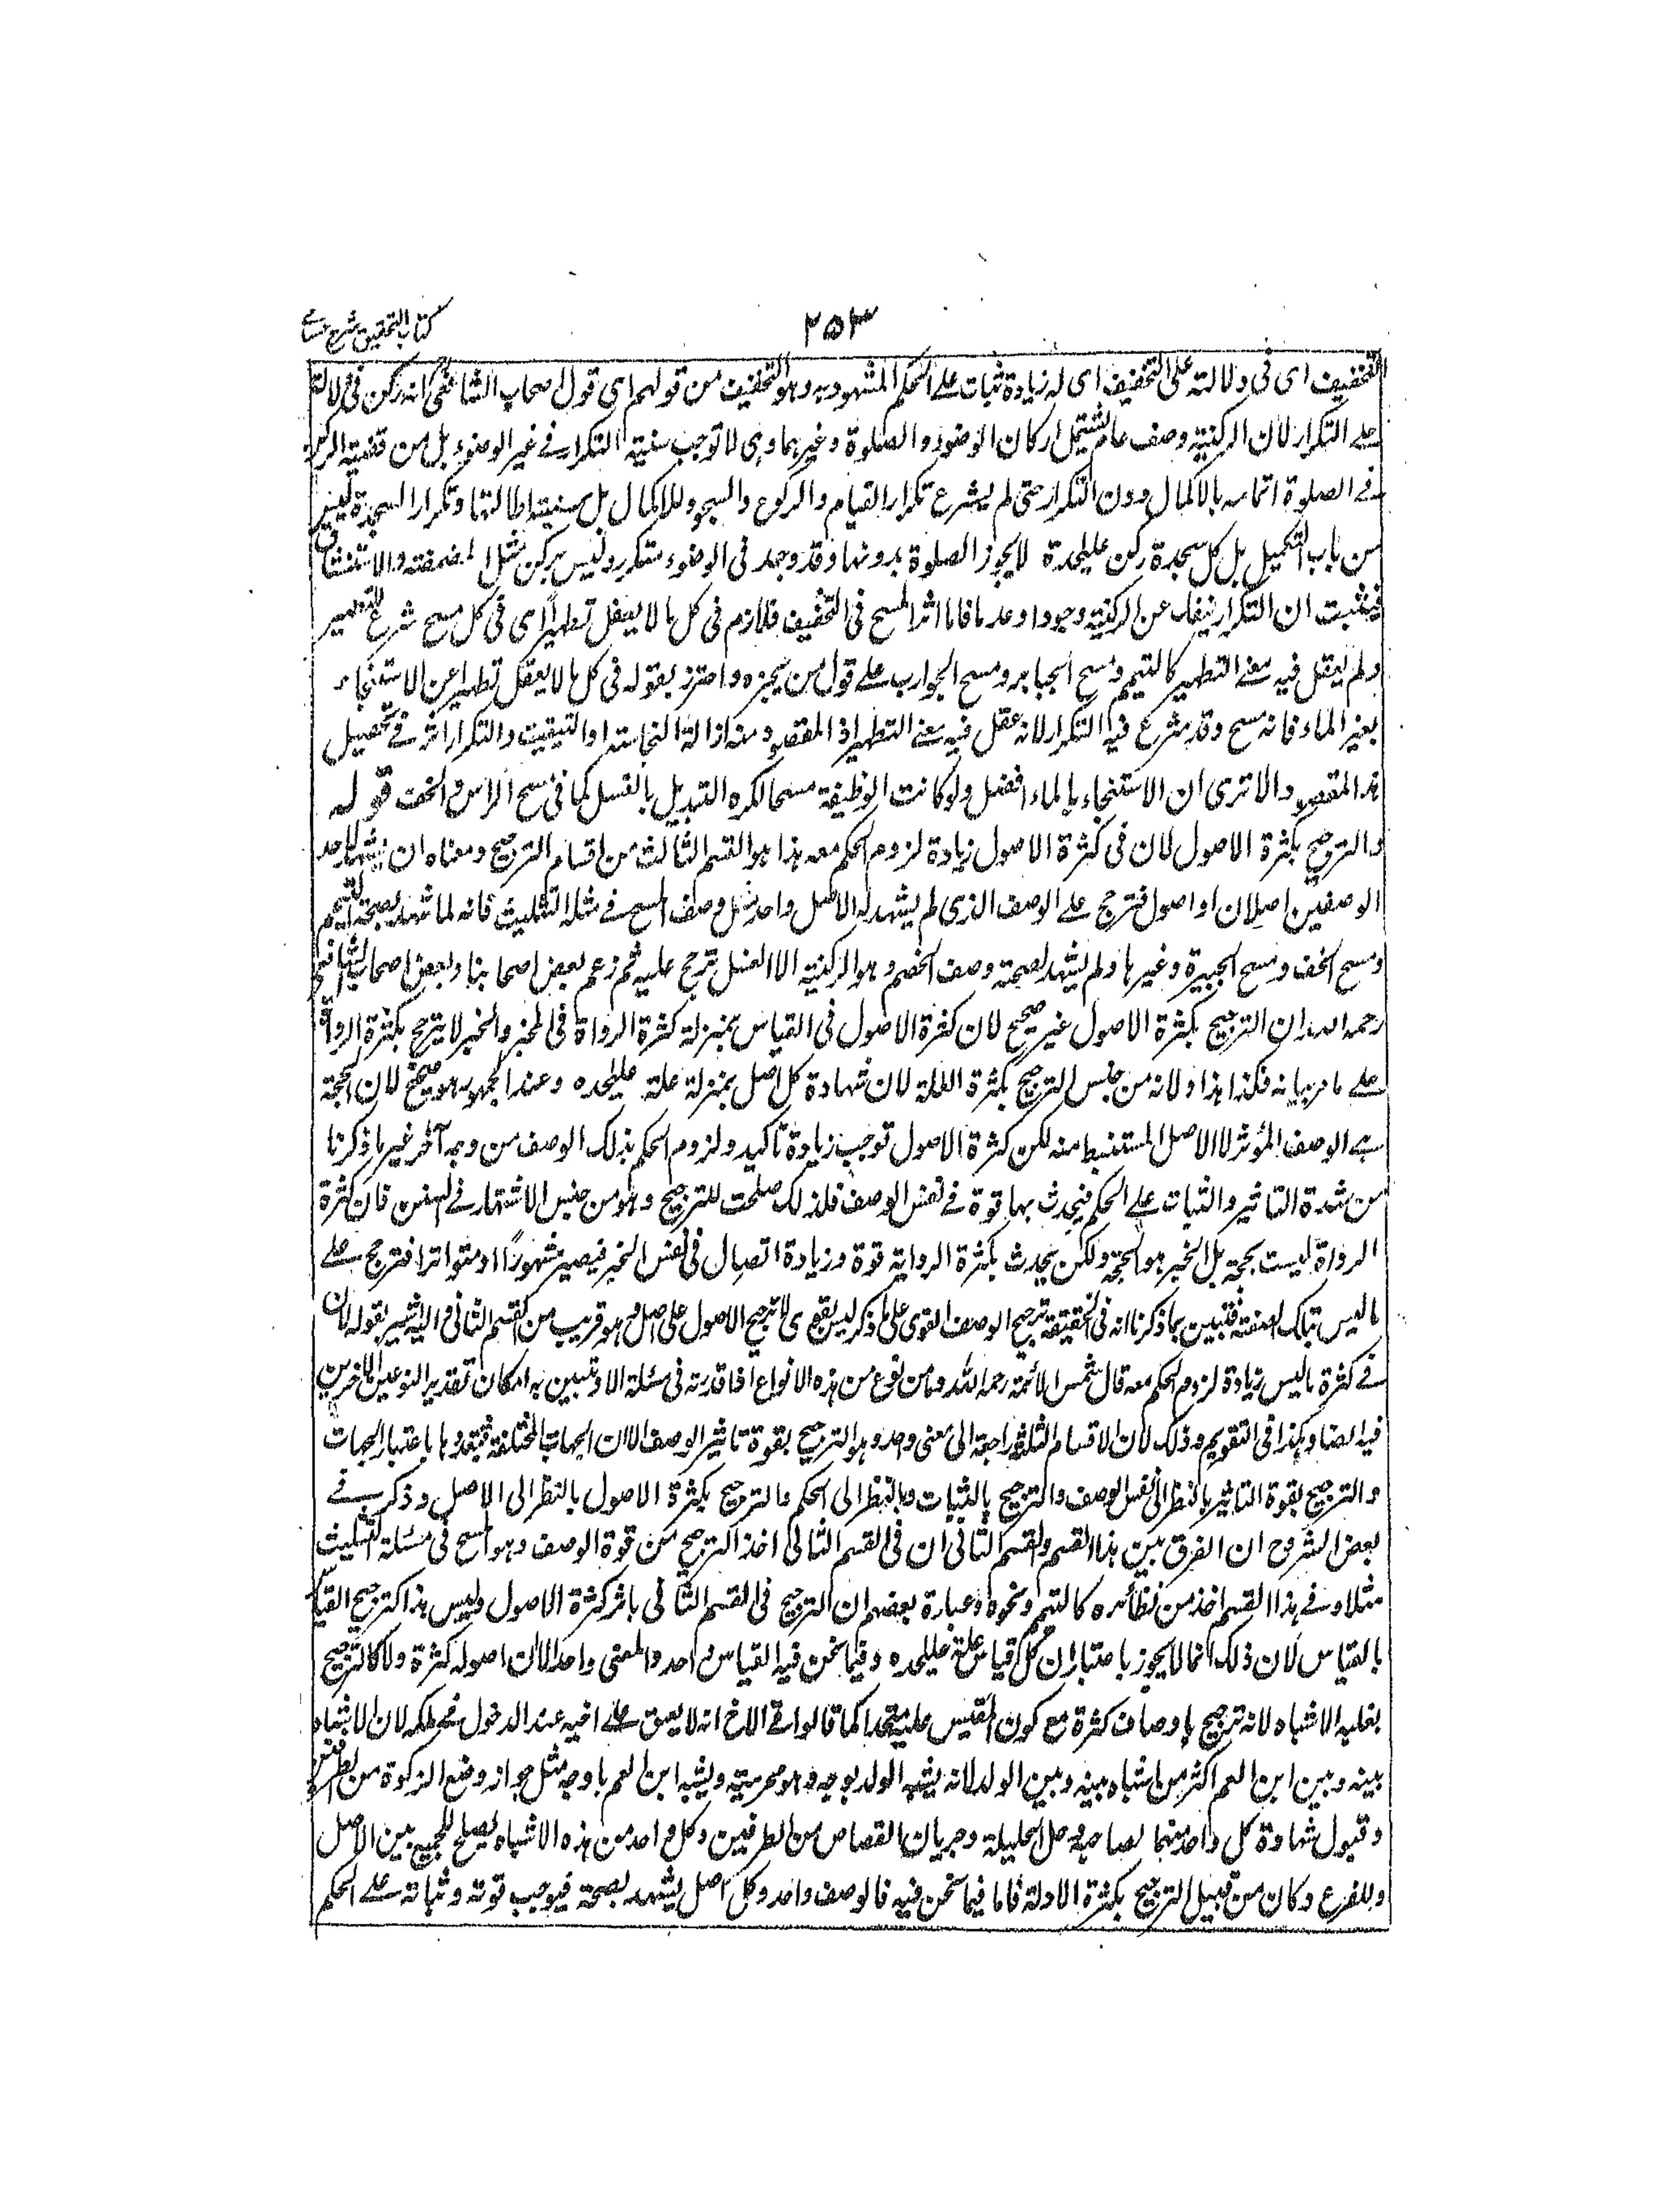 كتاب التحقيق شرح حسامي
٢٥٣
التخفيف اى فى دلالته على التخفيف اى له زيادة ثبات على الحكم المشهود به وهو التخفيف من قولهم اى قول اصحاب الشافعى انه ركن فى دلالته
على التكرار لان الركنية وصف عام يشتمل اركان الوضوء والصلوة وغيرهما وهى لا توجب سنية التكرار فى غير الوضوء بل من قضية الركن
فى الصلوة اتمامه بالاكمال دون التكرار حتى لم يشرع تكرار القيام والركوع والسجود للاكمال بل سنيته اطالتها وتكرار السجدة ليس
من باب التكميل بل كل سجدة ركن عليحدة لا يجوز الصلوة بدونها وقد وجد فى الوضوء متكرر وليس بركن مثل المضمضة والاستنشاق
فيثبت ان التكرار ينفك عن الركنية وجودا وعدما فاما اثر المسح فى التخفيف فلازم فى كل ما لا يعقل تطهيرا اى فى كل مسح شرع للتطهير
ولم يعقل فيه معنى التطهير كالتيمم ومسح الجبائر ومسح الجوارب على قول من يجيزه واحترز بقوله فى كل ما لا يعقل تطهيرا عن الاستنجاء
بغير الماء فانه مسح وقد شرع فيه التكرار لانه عقل فيه معنى التطهير اذ المقصود منه ازالة النجاسة او التنقية والتكرار اثر فى تحصيل
هذا المقصود الا ترى ان الاستنجاء بالماء افضل ولو كانت الوظيفة مسحا لكره التبديل بالغسل كما فى مسح الراس والخف قوله
والترجيح بكثرة الاصول لان فى كثرة الاصول زيادة لزوم الحكم معه هذا هو القسم الثالث من اقسام الترجيح ومعناه ان يشهد لاحد
الوصفين اصلان او اصول فترجح على الوصف الذى لم يشهد له الا اصل واحد مثل وصف المسح فى مسئلة التثليث فانه لما شهد بصحته التيمم
ومسح الخف ومسح الجبيرة وغيرها ولم يشهد لصحة وصف الخصم وهو الركنية الا الغسل ترجح عليه ثم زعم بعض اصحابنا وبعض اصحاب الشافعى
رحمه الله ان الترجيح بكثرة الاصول غير صحيح لان كثرة الاصول فى القياس بمنزلة كثرة الرواة فى الخبر والخبر لا يترجح بكثرة الرواة
على ما مر بيانه فكذا هذا ولانه من جنس الترجيح بكثرة العلة لان شهادة كل اصل بمنزلة علة عليحده وعند الجمهور هو صحيح لان الحجة
هى الوصف المؤثر لا الاصل المستنبط منه لكن كثرة الاصول توجب زيادة تاكيد ولزوم الحكم بذلك الوصف من وجه آخر غير ما ذكرنا
من شدة التاثير والثبات على الحكم فيحدث بها قوة فى نفس الوصف فلذلك صلحت للترجيح وهو من جنس الاشتهار فى السنن فان كثرة
الرواة ليست بحجة بل الخبر هو الحجة ولكن يحدث بكثرة الرواية قوة وزيادة اتصال فى نفس الخبر فيصير مشهورًا او متواترا فترجح على
ما ليس بتلك الصفة فتبين بما ذكرنا انه فى الحقيقة ترجيح الوصف القوى على ما ذكر ليس بقوى لا ترجيح الاصول على اصل وهو قريب من القسم الثانى واليه يشير بقوله لان
فى كثرة ما ليس زيادة لزوم الحكم معه قال شمس الائمة رحمه الله وما من نوع من هذه الانواع اذا قدرته فى مسئلة الا وتبين به امكان تقدير النوعين الاخرين
فيه ايضا وهكذا فى التقويم وذلك لان الاقسام الثلثة راجعة الى معنى واحد وهو الترجيح بقوة تاثير الوصف الا ان الجهات المختلفة فتعددها باعتبار الجهات
والترجيح بقوة التاثير بالنظر الى نفس الوصف والترجيح بالثبات وبالنظر الى الحكم والترجيح بكثرة الاصول بالنظر الى الاصل وذكر فى
بعض الشروح ان الفرق بين هذا القسم والقسم الثانى ان فى القسم الثانى اخذ الترجيح من قوة الوصف وهو المسح فى مسئلة التثليث
مثلا وفى هذا القسم اخذ من نظائره كالتيمم ونحوه وعبارة بعضهم ان الترجيح فى القسم الثانى باثر كثرة الاصول وليس هذا كترجيح القياس
بالقياس لان ذلك انما لا يجوز باعتبار ان كل قياس علة عليحده وفيما نحن فيه القياس واحد والمعنى واحد الا ان اصوله كثرة ولا كالترجيح
بغلبة الاشباه لانه ترجيح باوصاف كثرة مع كون المقيس عليه متحدا كما قالوا فى الاخ انه لا يعتق على اخيه عند الدخول فى ملكه لان الاشباه
بينه وبين ابن العم اكثر من اشباه بينه وبين الولد لانه يشبه الولد بوجه وهو محرميته ويشبه ابن العم باوجه مثل جوازه وضع الزكوة من الطرفين
وقبول شهادة كل واحد منهما لصاحبه وحل الحليلة وجريان القصاص من الطرفين وكل واحد من هذه الاشباه يصلح للجميع بين الاصل
وللفرع وكان من قبيل الترجيح بكثرة الادلة فاما فيما نحن فيه فالوصف واحد وكل اصل يشهد بصحته فيوجب قوته وثباته على الحكم